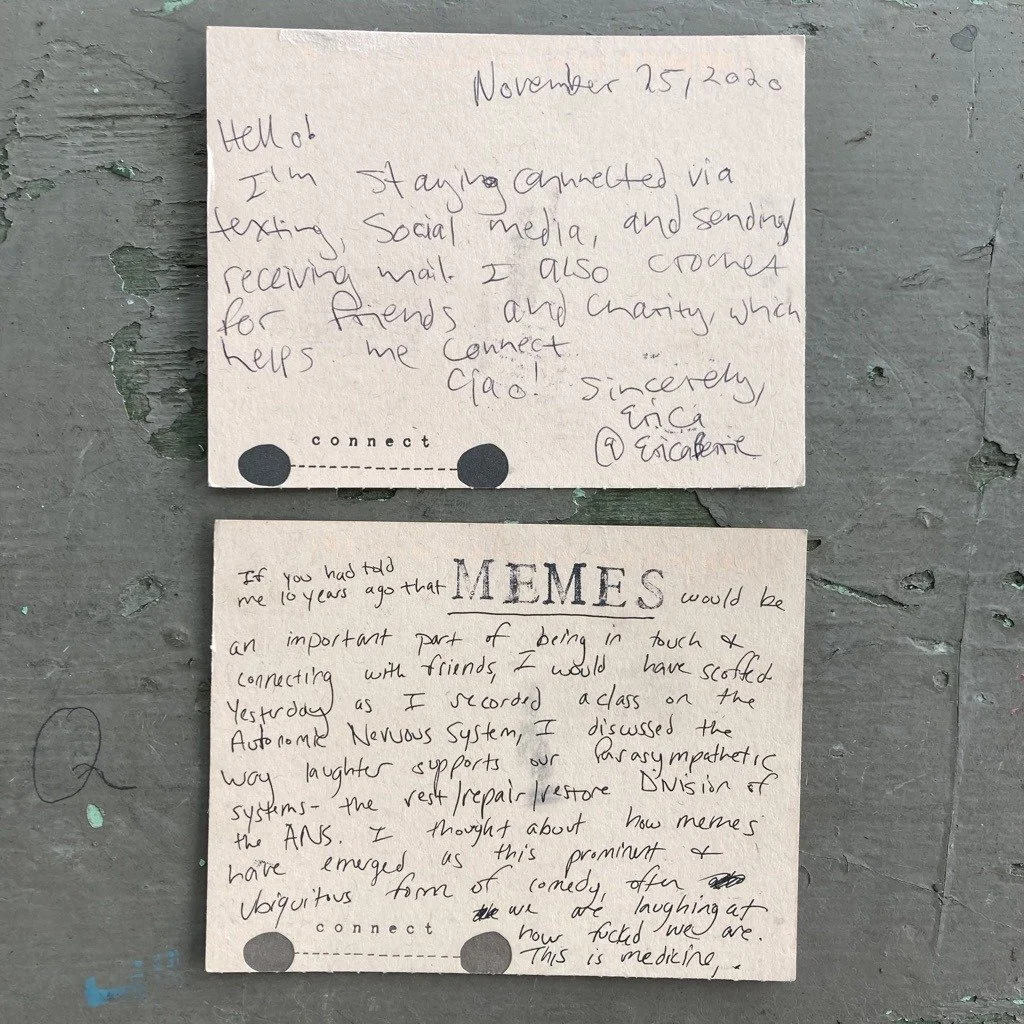 November 25, 2020
Hello!
I'm staying connected via
texting, social media, and sending/
receiving mail. I also crochet
for friends and charity, which
helps me connect
Ciao! Sincerely,
Erica
@EricaBerrie
connect
If you had told
me 10 years ago that MEMES would be
an important part of being in touch &
connecting with friends, I would have scoffed
Yesterday as I recorded a class on the
Autonomic Nervous System, I discussed the
way laughter supports our Parasympathetic
systems - the rest/repair/restore Division of
the ANS. I thought about how memes
have emerged as this prominent &
Ubiquitous form of comedy, often
we are laughing at
how fucked we are.
This is medicine.
connect